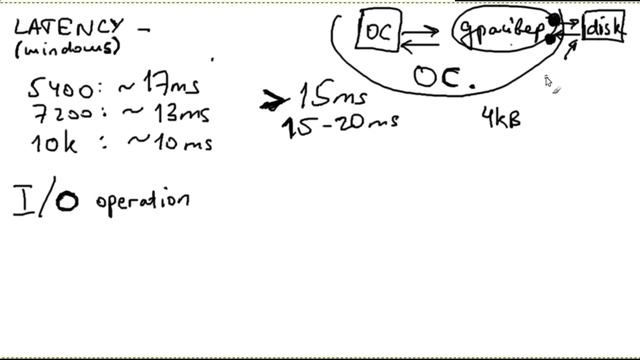 LATENCY -
(windows)
5400: ~17ms
7200: ~13ms
10k : ~10ms
I/O operation
> 15ms
15-20ms
ОС
драйвер
disk
ОС.
4kB